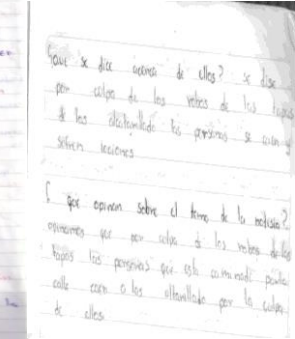 ¿que se dice acerca de ellos? se dise
por culpa de los robos de las tapas
de los alcatarillado las personas se caen y
sofren leciones
¿ que opinan sobre el tema de la noticia?
opinamos que por culpa de los robos de las
tapas las personas que est caminando por la
calle caen a los altarillado por la culpa
de elles